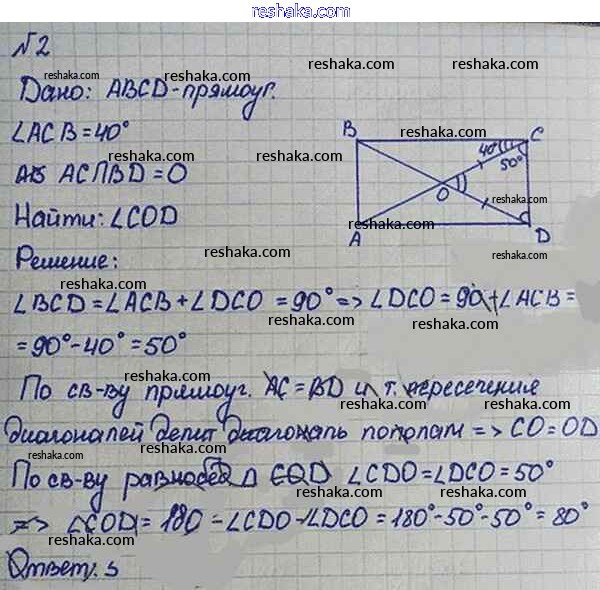 reshaka.com
№2
reshaka.com
Дано: ABCD-прямоуг.
reshaka.com
∠ACB=40°
reshaka.com
AC∩BD=O
reshaka.com
Найти: ∠COD
reshaka.com
B C 40° 50°
reshaka.com
O
reshaka.com
A D
reshaka.com
Решение:
reshaka.com
∠BCD=∠ACB+∠DCO=90°=>∠DCO=90+∠ACB=
reshaka.com reshaka.com
=90°-40°=50°
reshaka.com reshaka.com
По св-ву прямоуг. AC=BD и т. пересечения
reshaka.com reshaka.com
диагоналей делит диагональ пополам => CO=OD
reshaka.com reshaka.com
По св-ву равнобед Δ COD ∠CDO=∠DCO=50°
reshaka.com reshaka.com
=> ∠COD=180-∠CDO-∠DCO=180°-50°-50°=80°
reshaka.com reshaka.com
Ответ:
reshaka.com